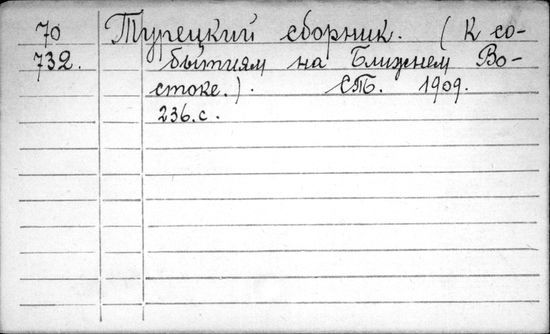 70 Турецкий сборник. (К со-
732. бытиям на Ближнем Во-
стоке.). СПб. 1909.
236.с.